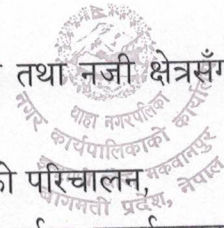 तथा नजी क्षेत्रसँग
थाहा नगरपालिका
नगर कार्यपालिकाको कार्यालय
मकवानपुर
परिचालन,
बागमती प्रदेश, नेपाल